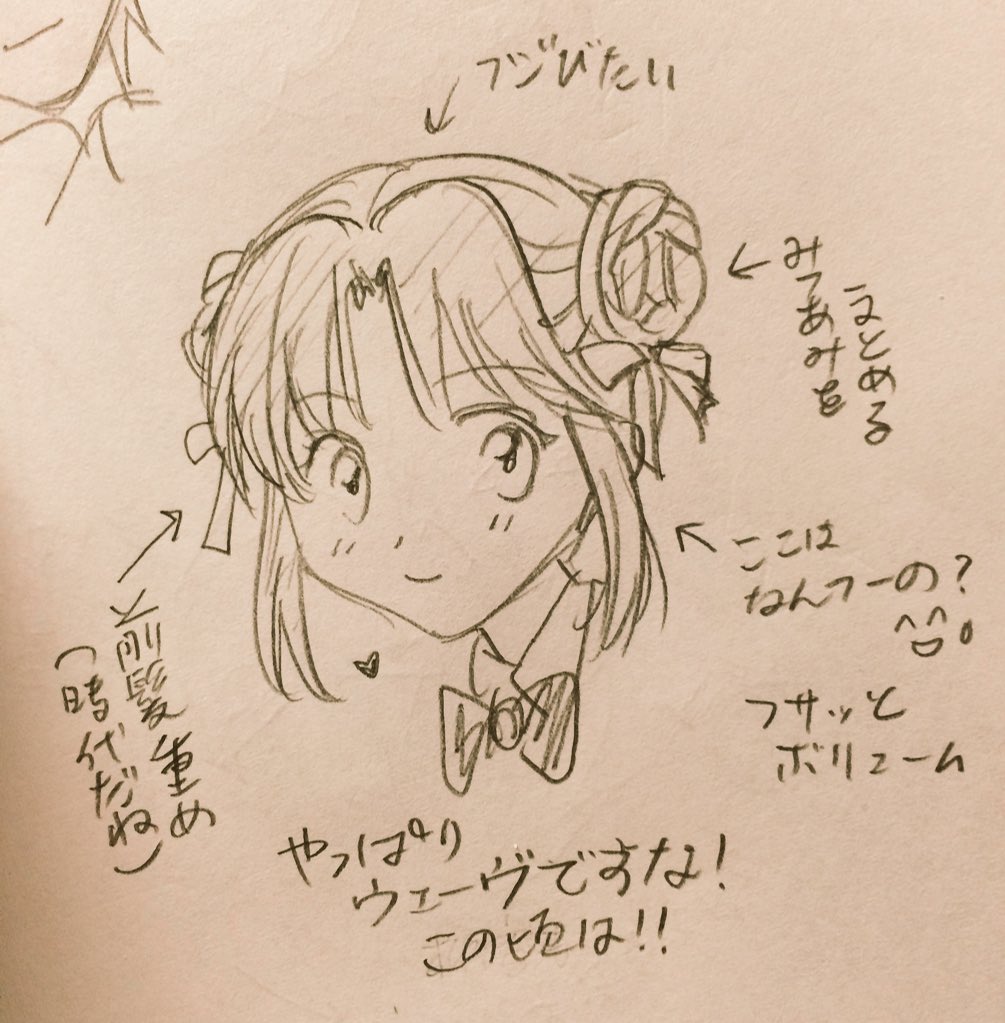 フジびたい
みつあみを
まとめる
ここは
なんつーの?
フサッと
ボリューム
前髪重め
(時代だね)
やっぱり
ウェーヴですな!
この頃は!!